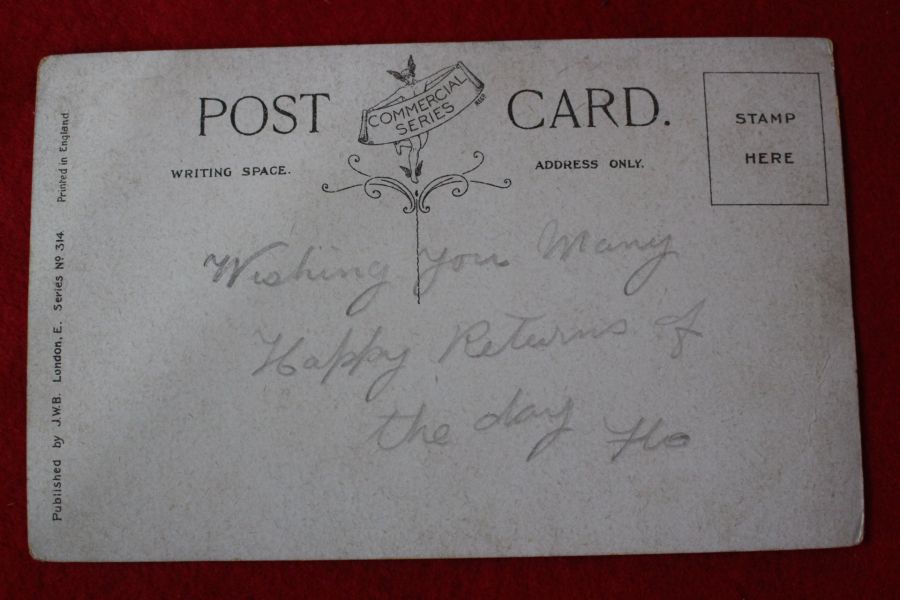 POST CARD.
COMMERCIAL
SERIES
STAMP
HERE
WRITING SPACE.
ADDRESS ONLY.
Wishing you Many
Happy Returns of
the day Flo
Published by J.W.B. London, E. Series Nº 314 Printed in England